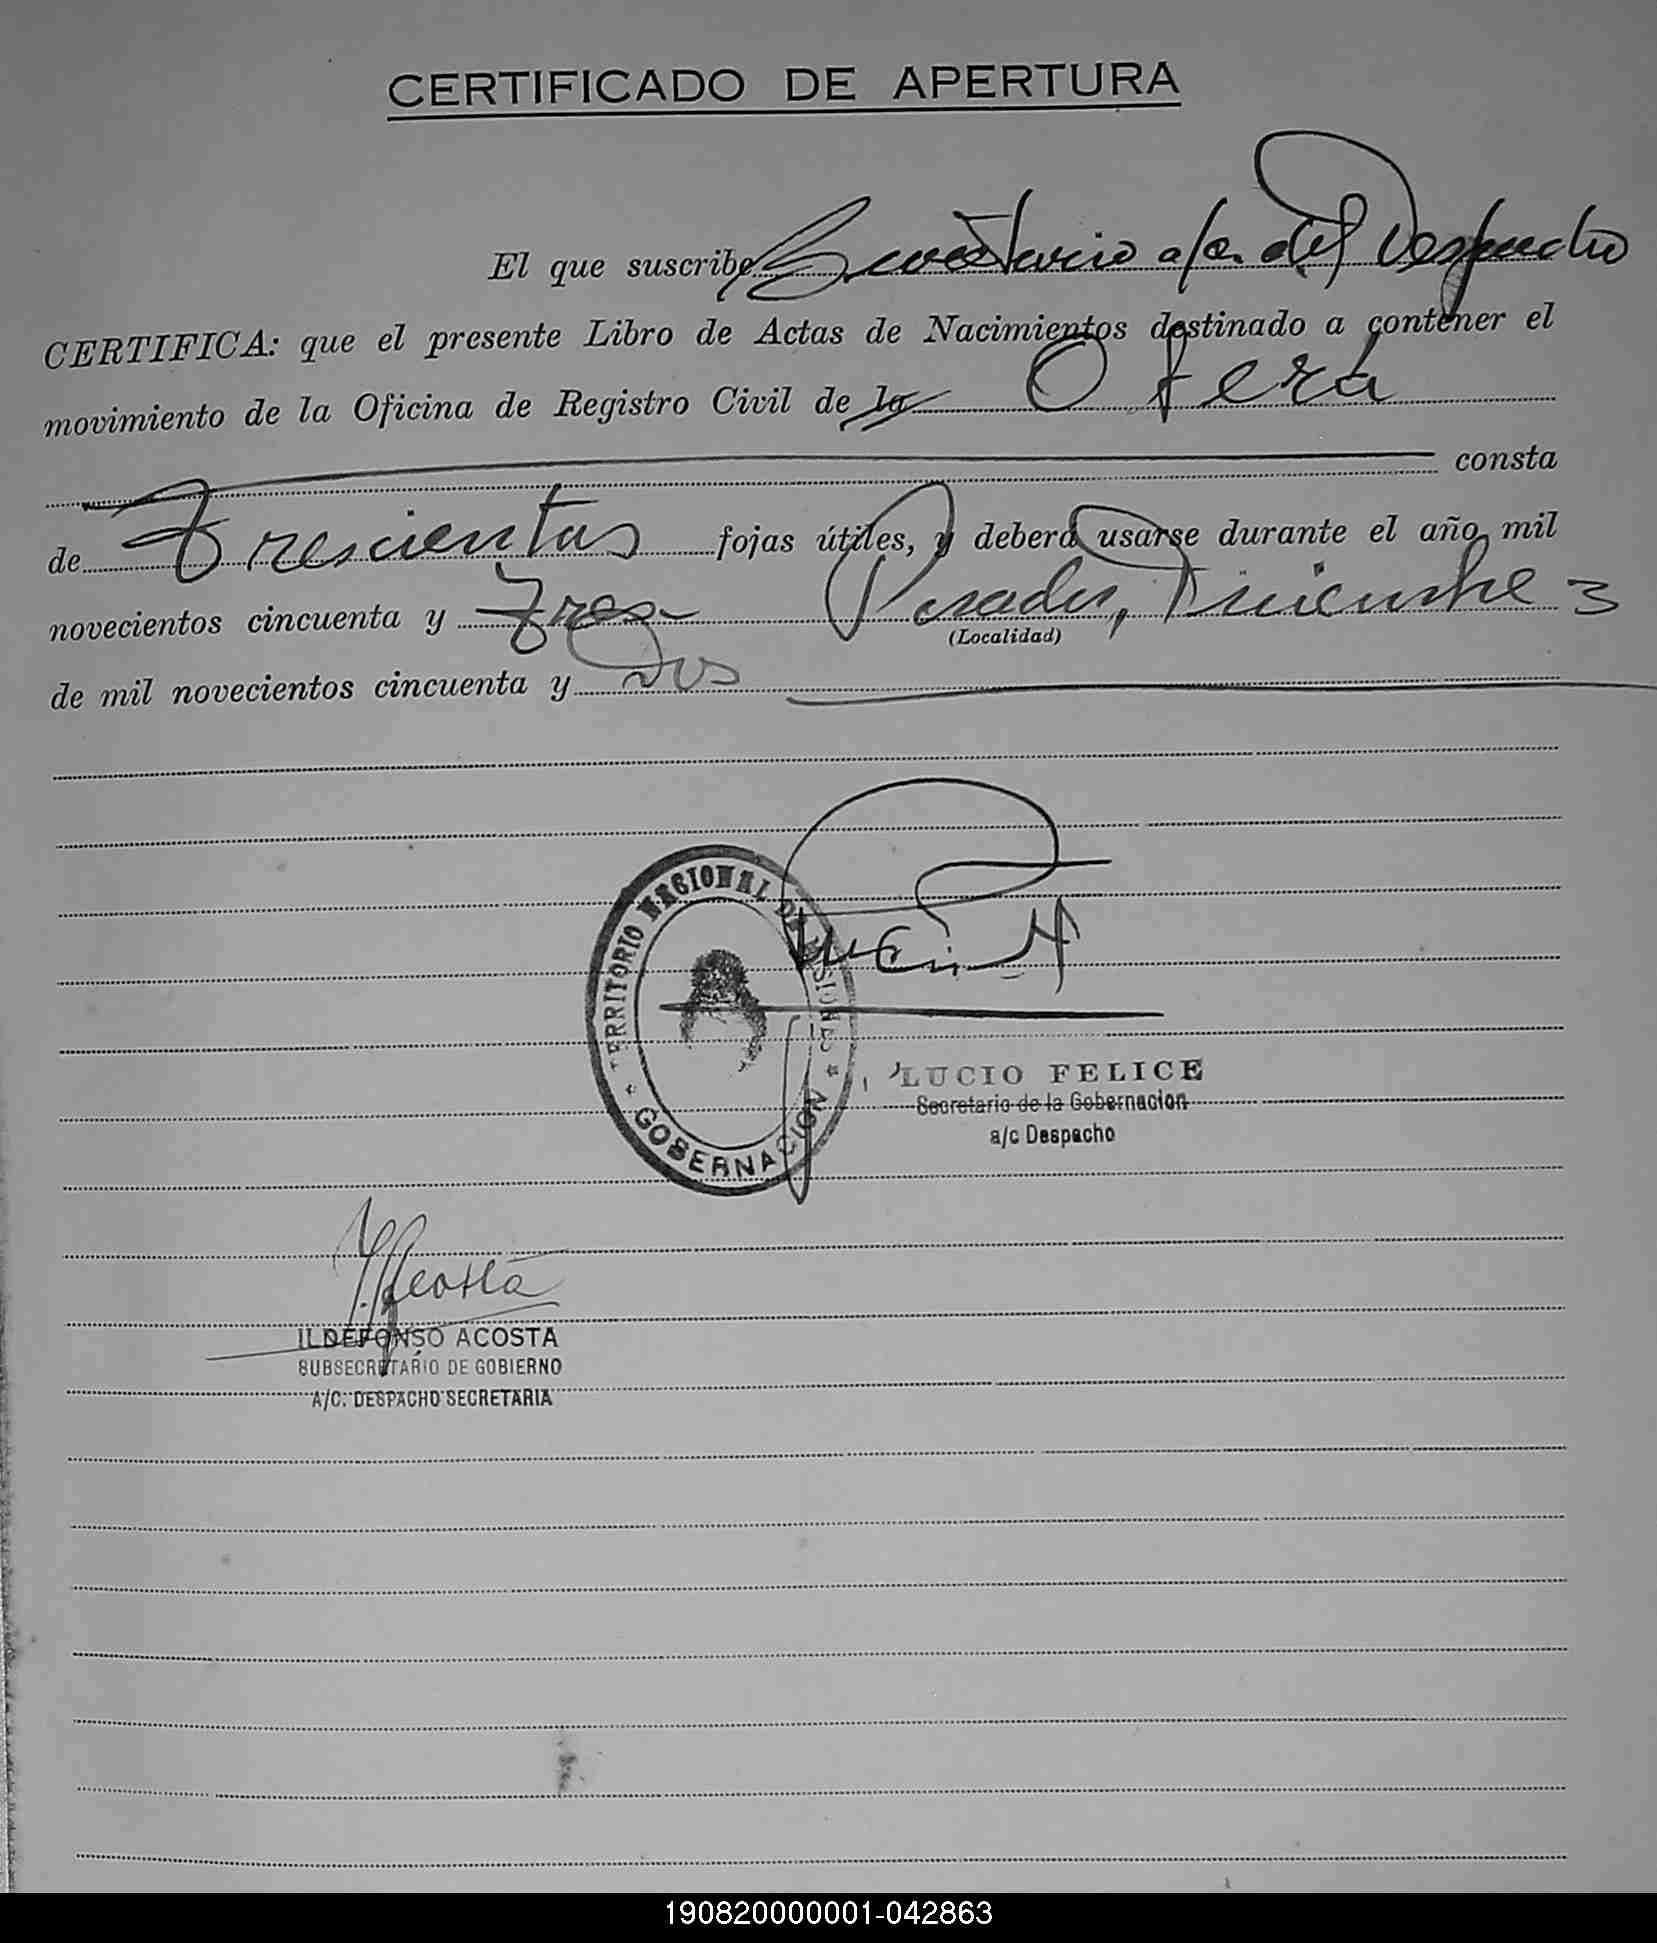 CERTIFICADO DE APERTURA
El que suscribe Secretario a/c. del Despacho
CERTIFICA: que el presente Libro de Actas de Nacimientos destinado a contener el
movimiento de la Oficina de Registro Civil de la Oberá
consta
de Trescientas fojas útiles, y deberá usarse durante el año mil
novecientos cincuenta y Tres Posadas, Diciembre 3
(Localidad)
de mil novecientos cincuenta y Dos
TERRITORIO NACIONAL DE MISIONES
* GOBERNACION *
LUCIO FELICE
Secretario de la Gobernacion
a/c Despacho
Acosta
ILDEFONSO ACOSTA
SUBSECRETARIO DE GOBIERNO
A/C. DESPACHO SECRETARIA
190820000001-042863